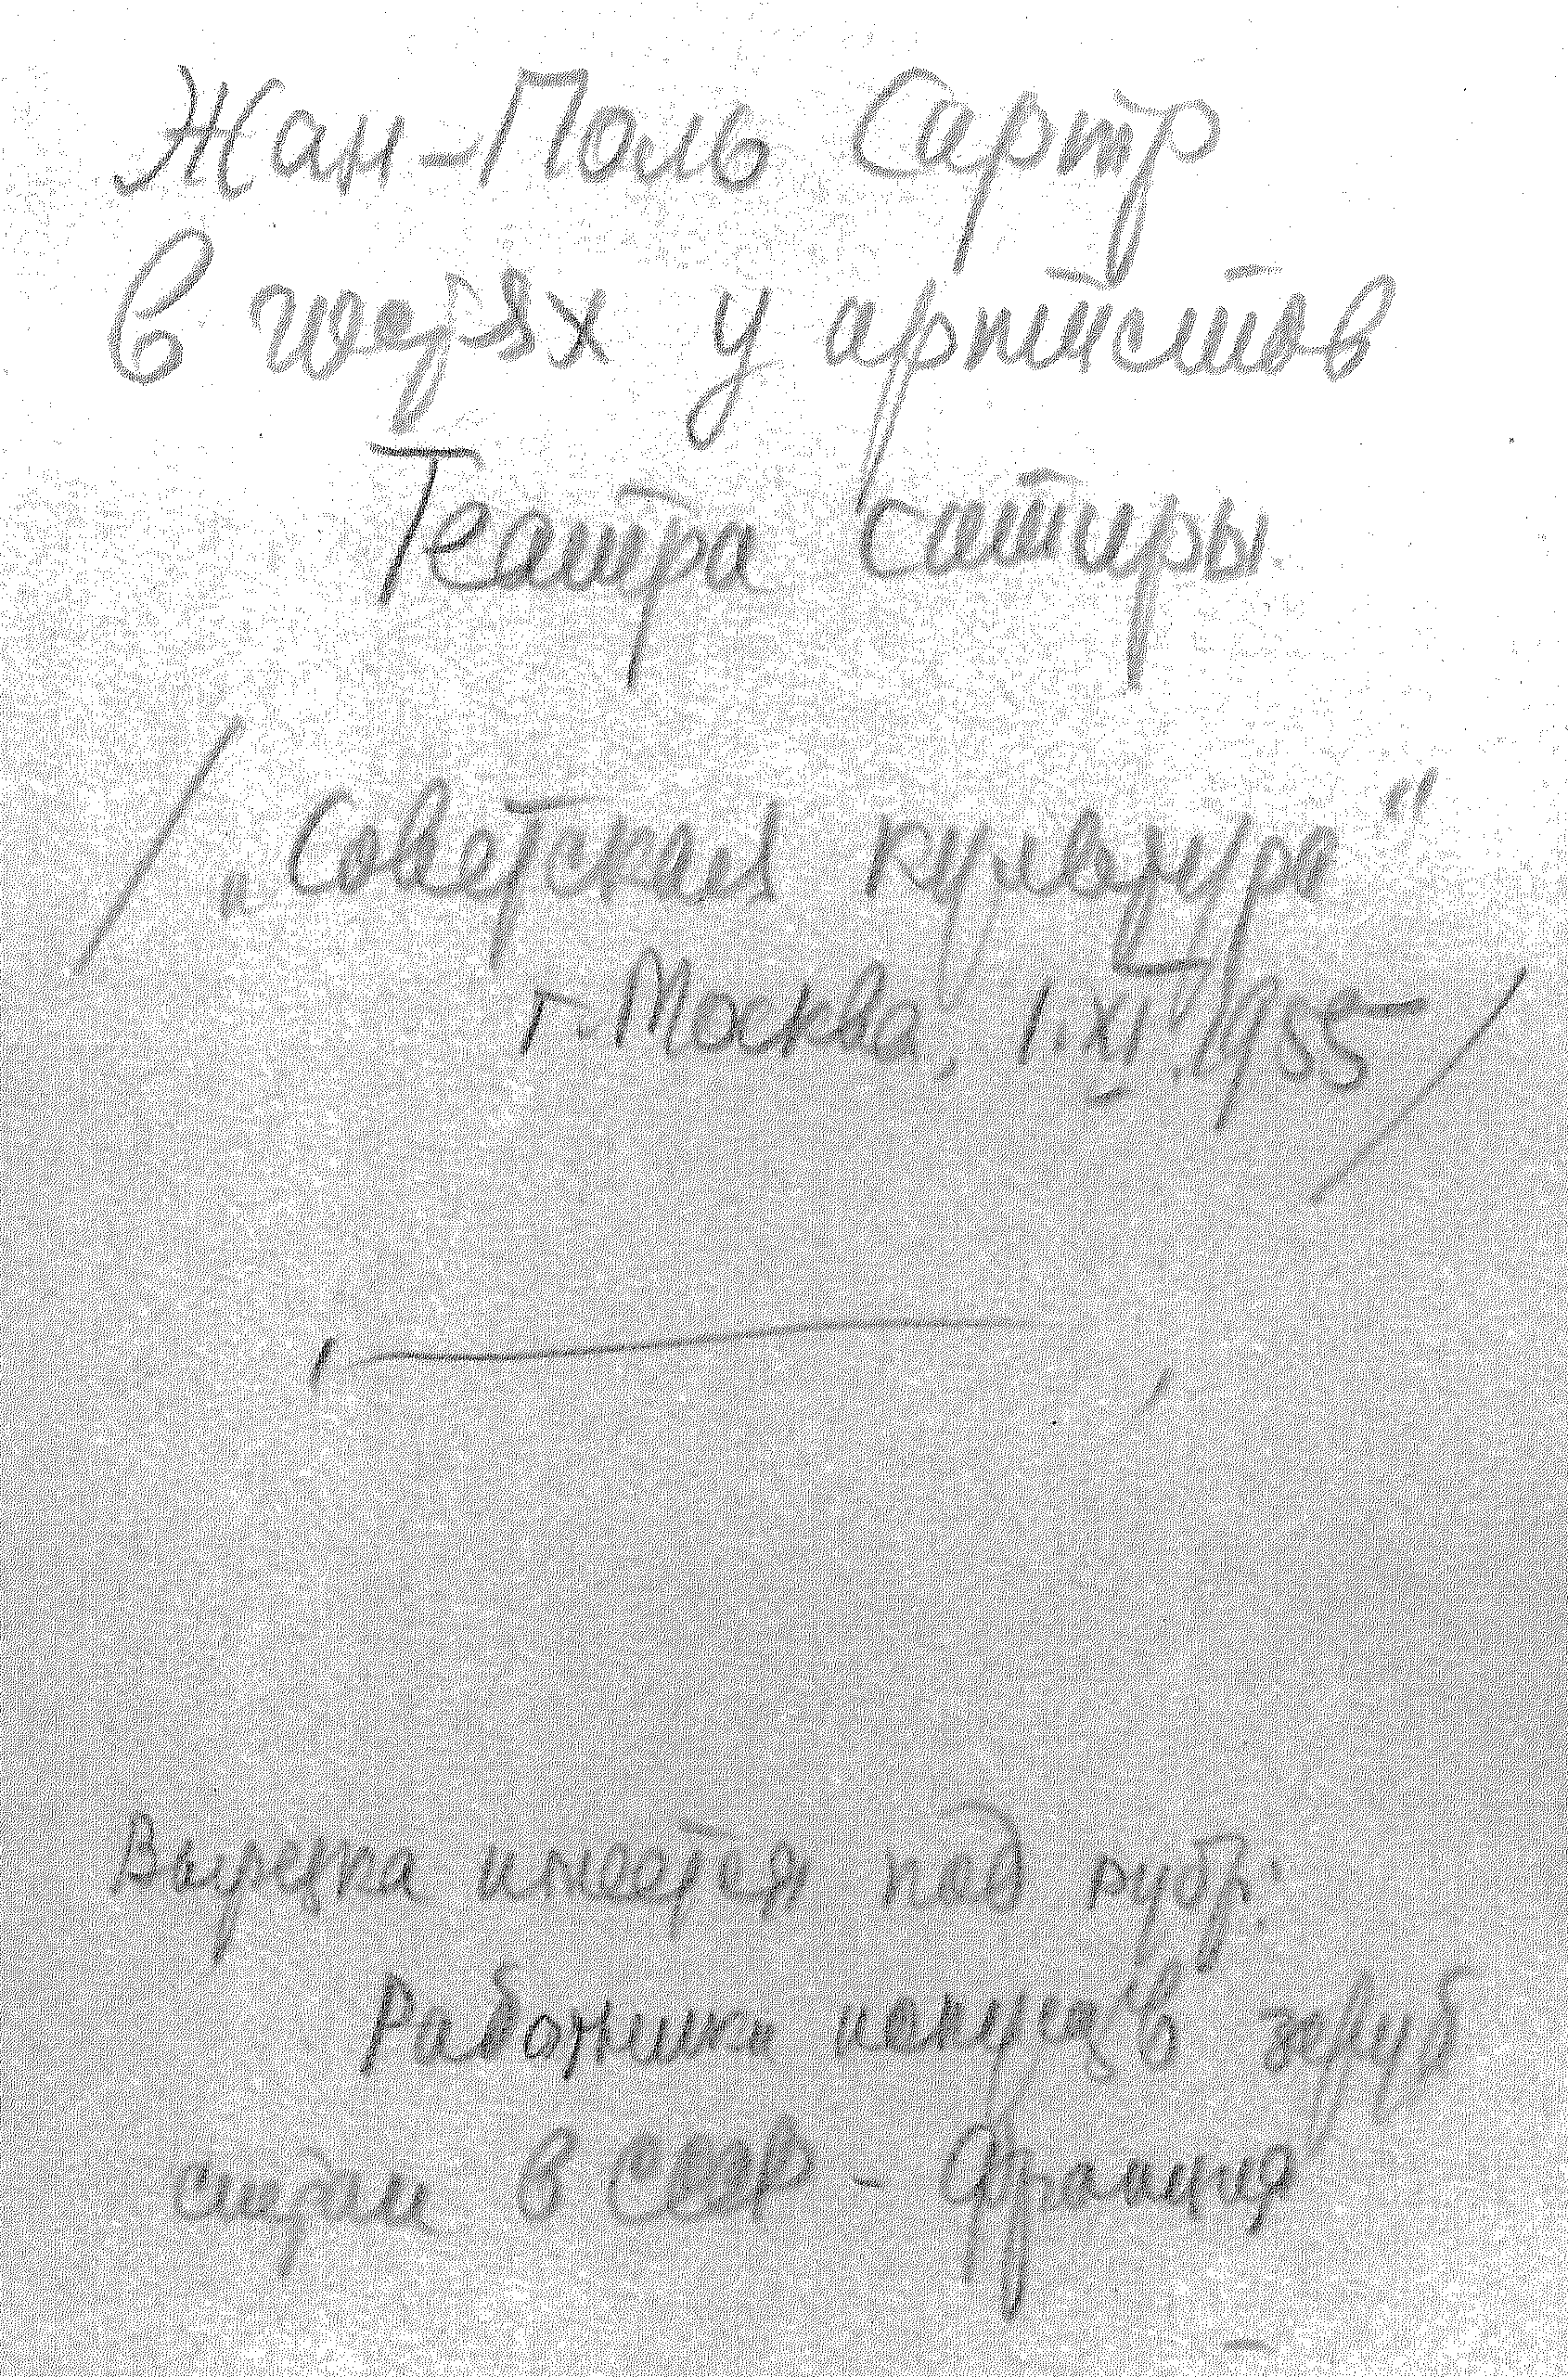 Жан-Поль Сартр
в гостях у артистов
Театра сатиры
/„Советская культура"
г. Москва, 1.VI.1955/
Вырезка имеется под рубр.
Работники искусств
в СССР - Франция